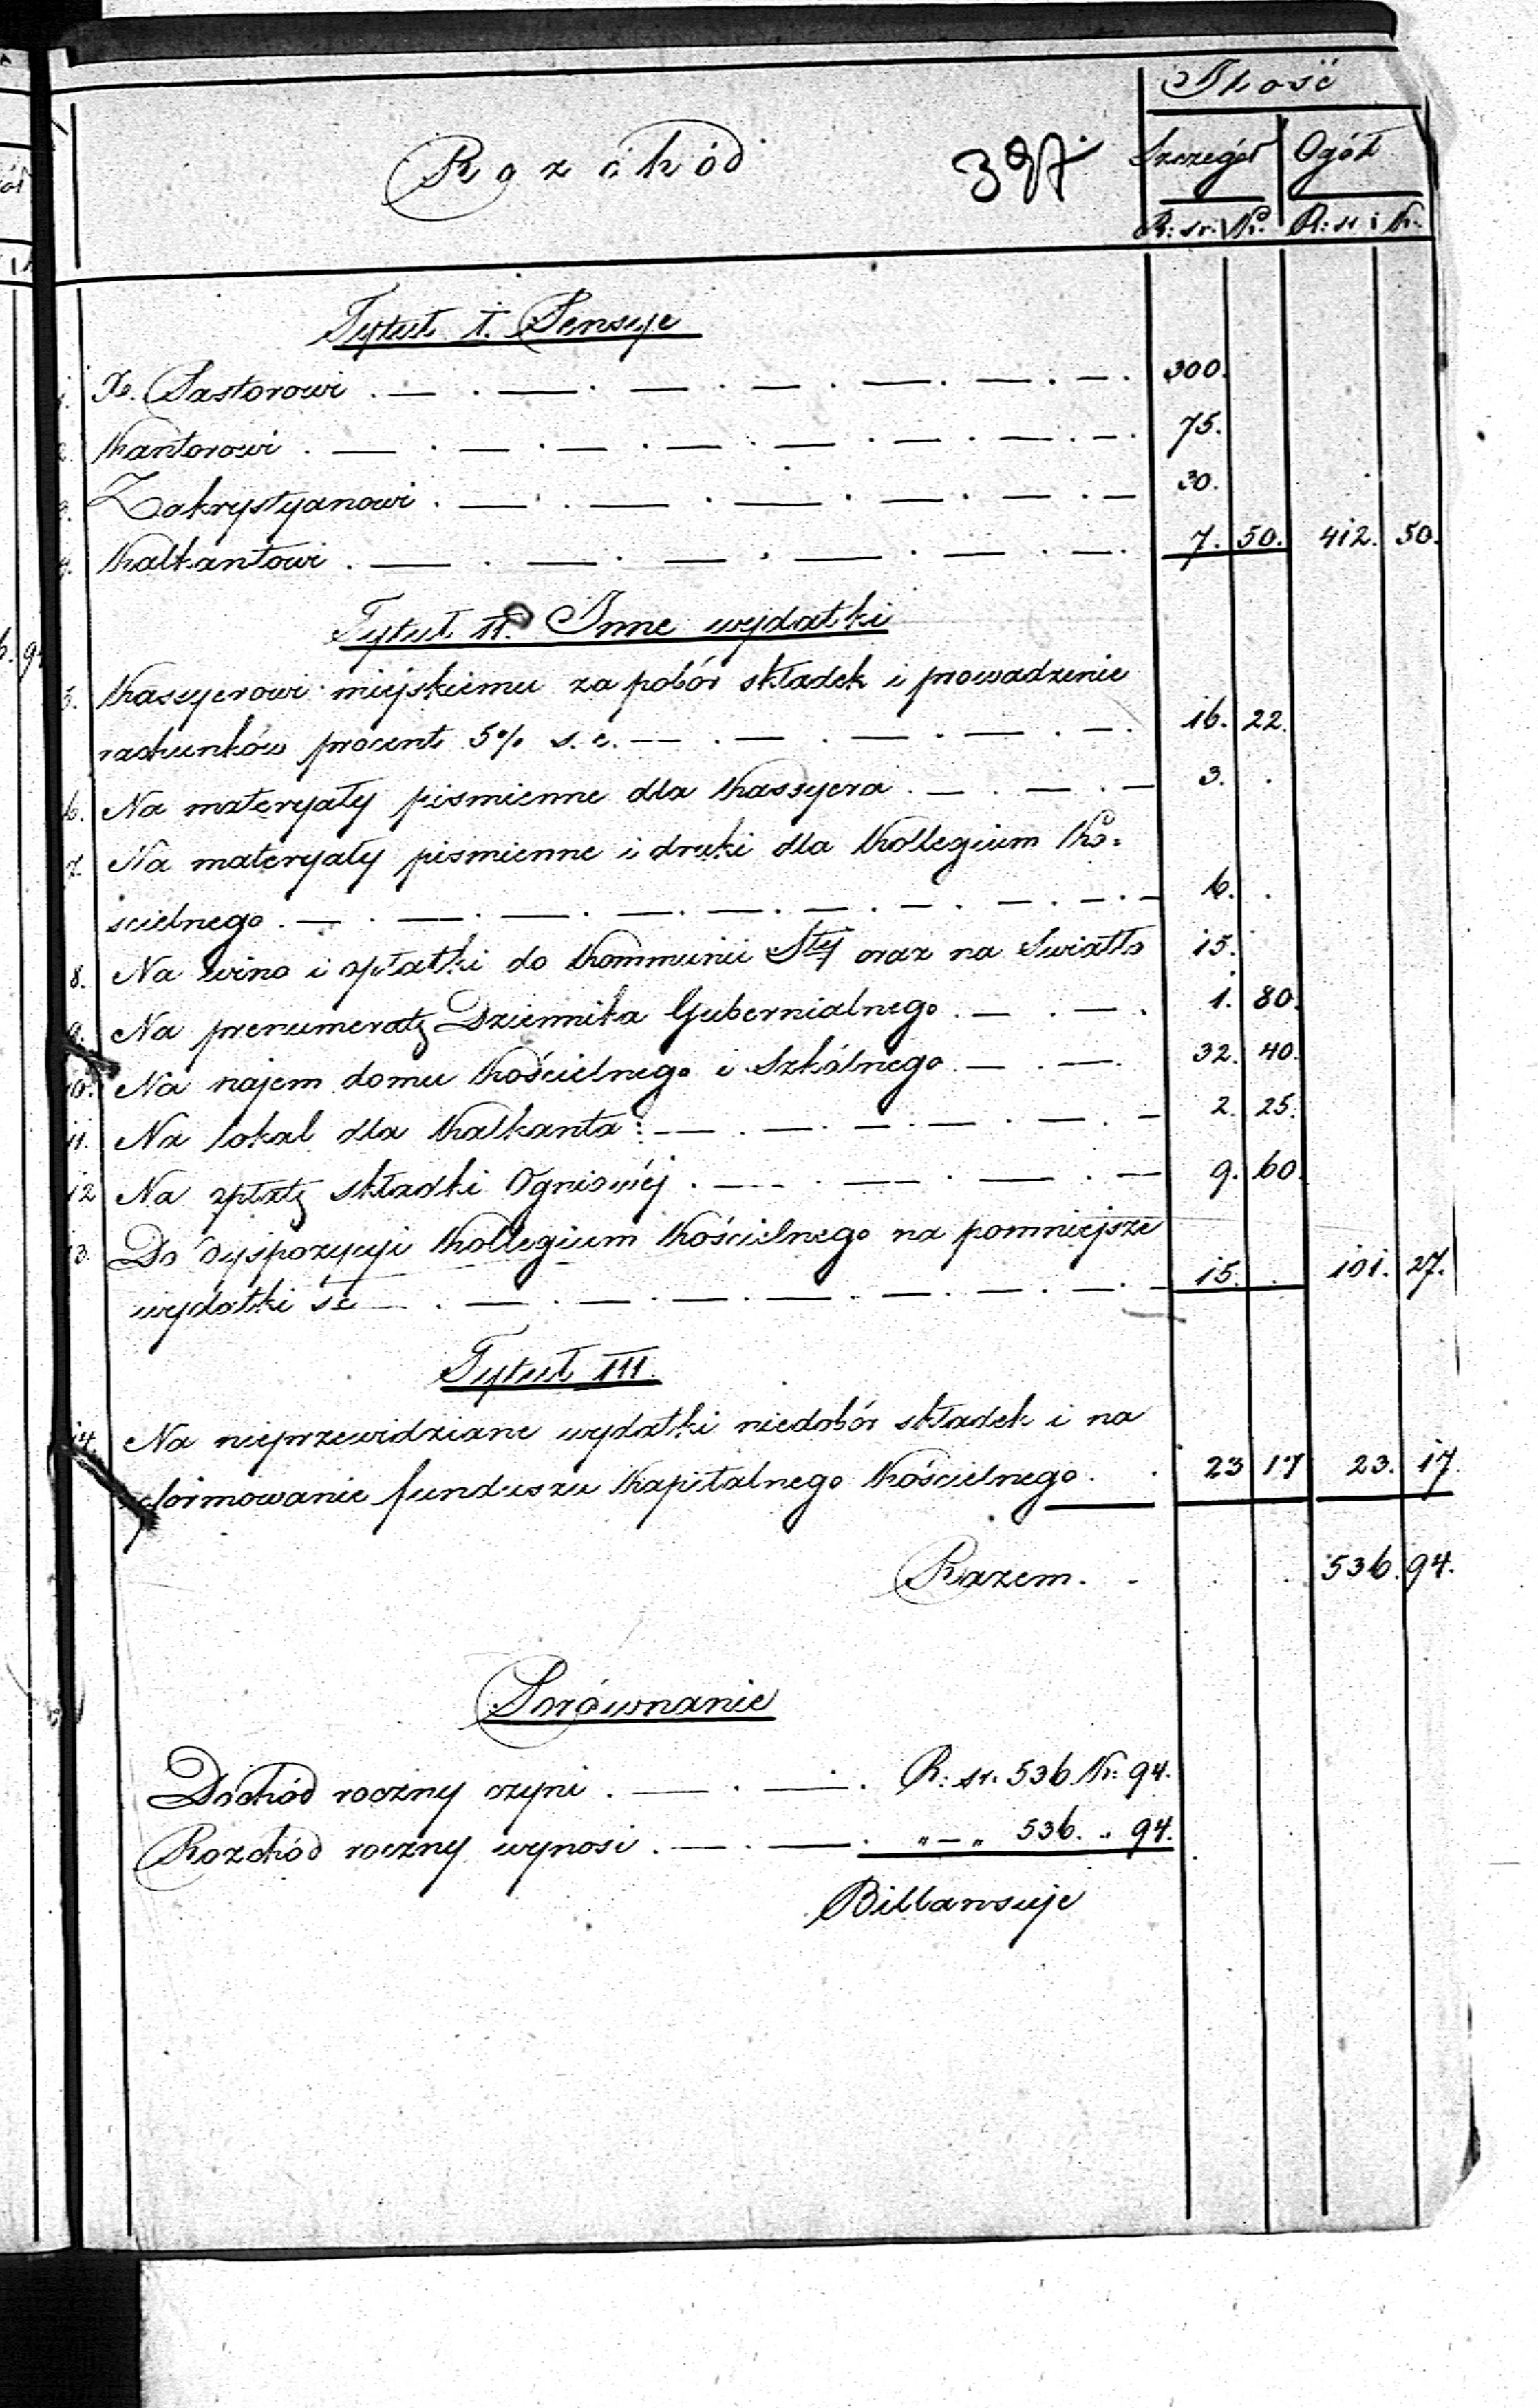 Ilość
Rozchód 397. Szczegół Ogół
R: sr. K. R: sr K.
Tytuł I. Pensye
1. X. Pastorowi . — . — . — . — . — . — . 300.
2. Kantorowi . — . — . — . — . — . — . 75.
3. Zakrystyanowi . — . — . — . — . — . — 30.
4. Kalkantowi . — . — . — . — . — . 7. 50. 412. 50.
Tytuł II. Inne wydatki
5. Kassyerowi miejskiemu za pobór składek i prowadzenie
rachunków procent 5% s. c. — . — . — . — . — . 16. 22.
6. Na materyały pismienne dla Kassyera . — . — . — 3. .
7. Na materyały pismienne i druki dla Kollegium Ko=
scielnego . — . — . — . — . — . — . — . — 6. .
8. Na wino i opłatki do Kommunii Stej oraz na Swiatło 15.
9. Na prenumeratę Dziennika Gubernialnego . — . — . 1. 80.
10. Na najem domu Kościelnego i Szkólnego — . — . 32. 40.
11. Na lokal dla Kalkanta : — . — . — . — . — 2. 25.
12 Na opłatę składki Ogniowéj . — . — . — . — 9. 60.
13. Do dyspozycyi Kollegium Kościelnego na pomniejsze
wydatki — . — . — . — . — . — . — 15. . 101. 27.
Tytuł III.
14. Na nieprzewidziane wydatki niedobór składek i na
uformowanie funduszu Kapitalnego Kościelnego . . 23 17 23. 17.
Razem . . . . 536. 94.
Porównanie
Dochód roczny czyni . — . — . R: sr. 536. K: 94.
Rozchód roczny wynosi . — . — . " — " 536. " 94.
Billansuje